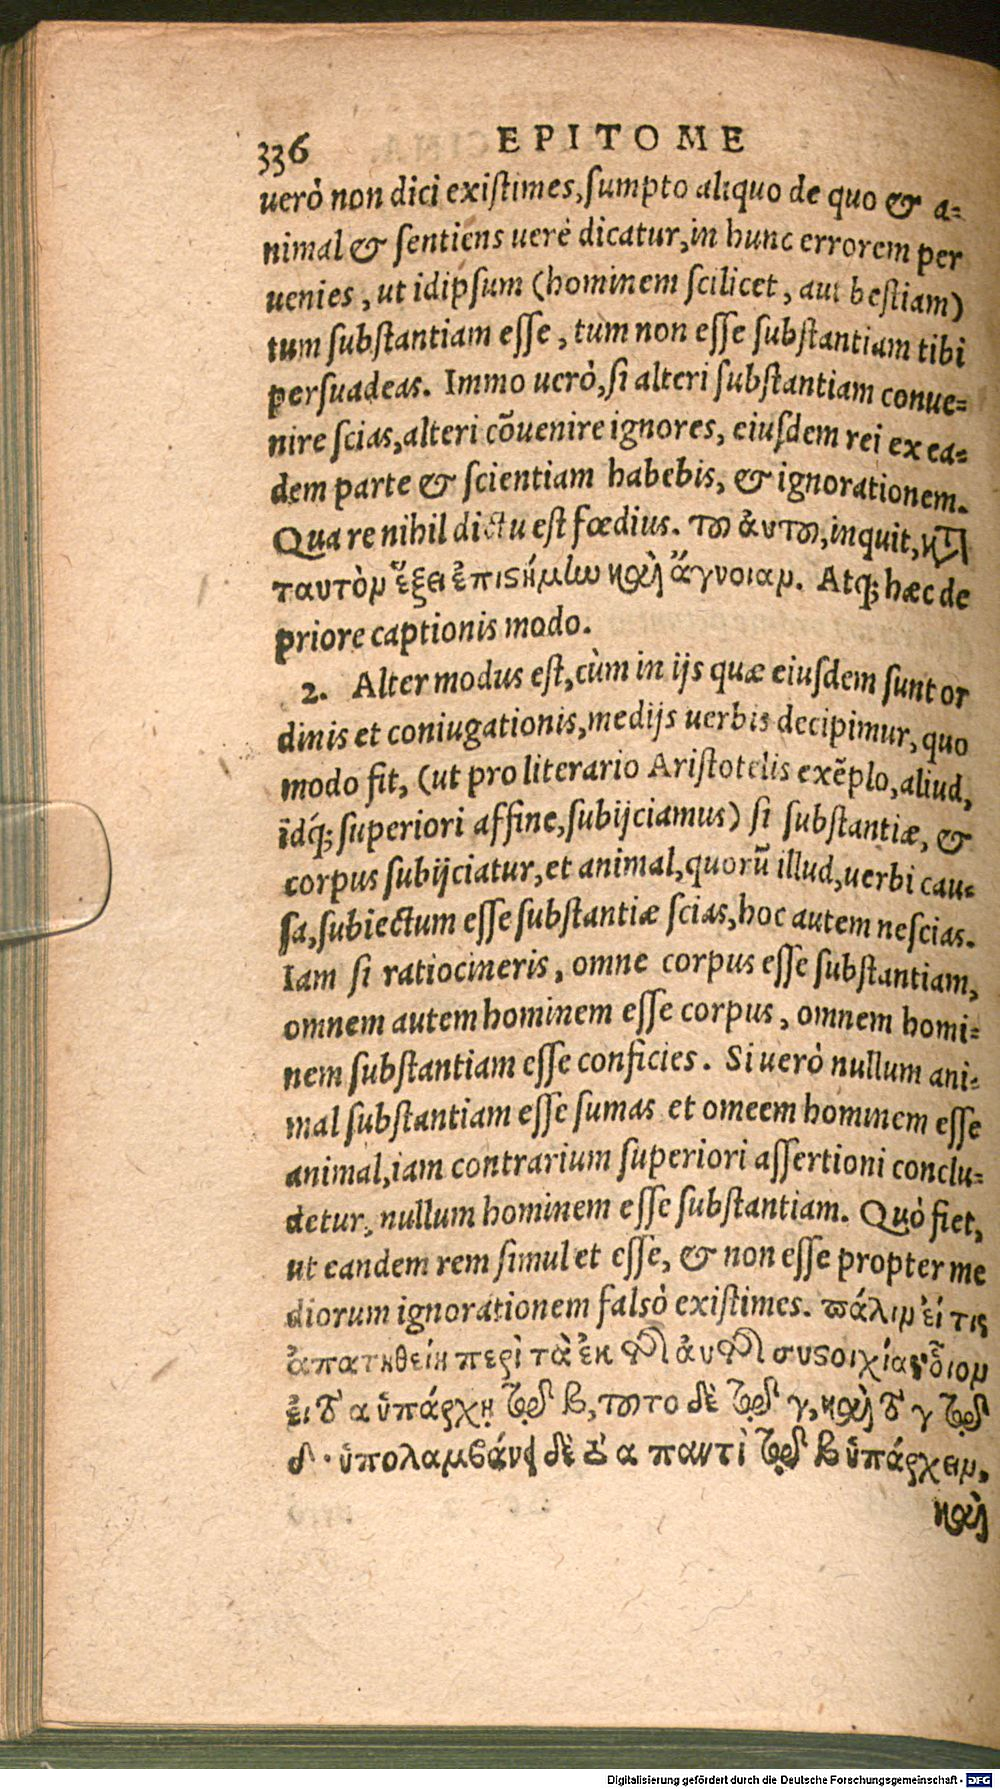 336 EPITOME
uerò non dici existimes, sumpto aliquo de quo & a-
nimal & sentiens uerè dicatur, in hunc errorem per
uenies, ut idipsum (hominem scilicet, aut bestiam)
tum substantiam esse, tum non esse substantiam tibi
persuadeas. Immo uerò, si alteri substantiam conue-
nire scias, alteri cõuenire ignores, eiusdem rei ex ea-
dem parte & scientiam habebis, & ignorationem.
Quare nihil dictu est fœdius. τῶ ἀυτῶ, inquit, κτ
ταυτὸν ἕξει ἐπιστήμίω καὶ ἄγνοιαν. Atq; hæc de
priore captionis modo.
2. Alter modus est, cùm in ijs quæ eiusdem sunt or
dinis et coniugationis, medijs uerbis decipimur, quo
modo fit, (ut pro literario Aristotelis exẽplo, aliud,
idq́; superiori affine, subijciamus) si substantiæ, &
corpus subijciatur, et animal, quorũ illud, uerbi cau-
sa, subiectum esse substantiæ scias, hoc autem nescias.
Iam si ratiocineris, omne corpus esse substantiam,
omnem autem hominem esse corpus, omnem homi-
nem substantiam esse conficies. Si uerò nullum ani-
mal substantiam esse sumas et omeem hominem esse
animal, iam contrarium superiori assertioni conclu-
detur, nullum hominem esse substantiam. Quò fiet,
ut eandem rem simul et esse, & non esse propter me
diorum ignorationem falsò existimes. πάλιν ἐί τις
ἀπατηθείη περὶ τὰ ἐκ τῆς ἀυτῆς συστοιχίας, οἷον
ἐι τὸ α ὑπάρχῃ τῷ β, τοῦτο δὲ τῷ γ, καὶ τὸ γ τῷ
δ· ὑπολαμβάνει δὲ τὸ α παντὶ τῷ β ὑπάρχειν,
καὶ
Digitalisierung gefördert durch die Deutsche Forschungsgemeinschaft - DFG